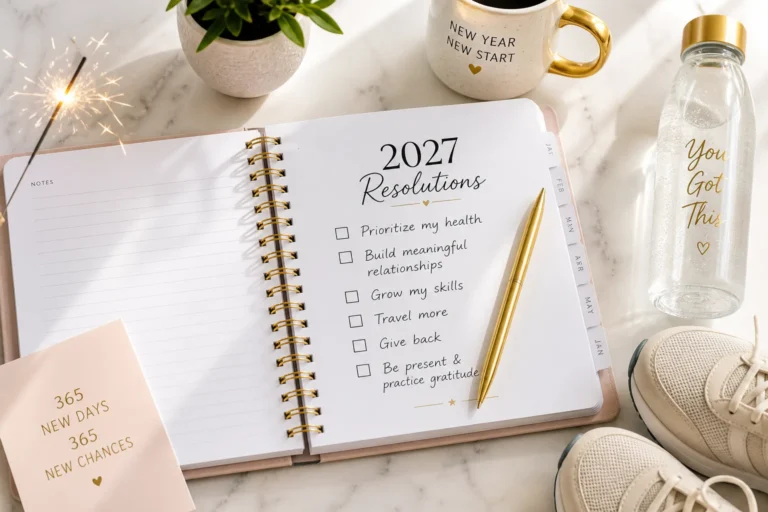 NEW YEAR
NEW START
NOTES
2027
Resolutions
Prioritize my health
Build meaningful
relationships
Grow my skills
Travel more
Give back
Be present &
practice gratitude
FEB
APR
MAY
JAN
You
Got
This
365
NEW DAYS
365
NEW CHANCES